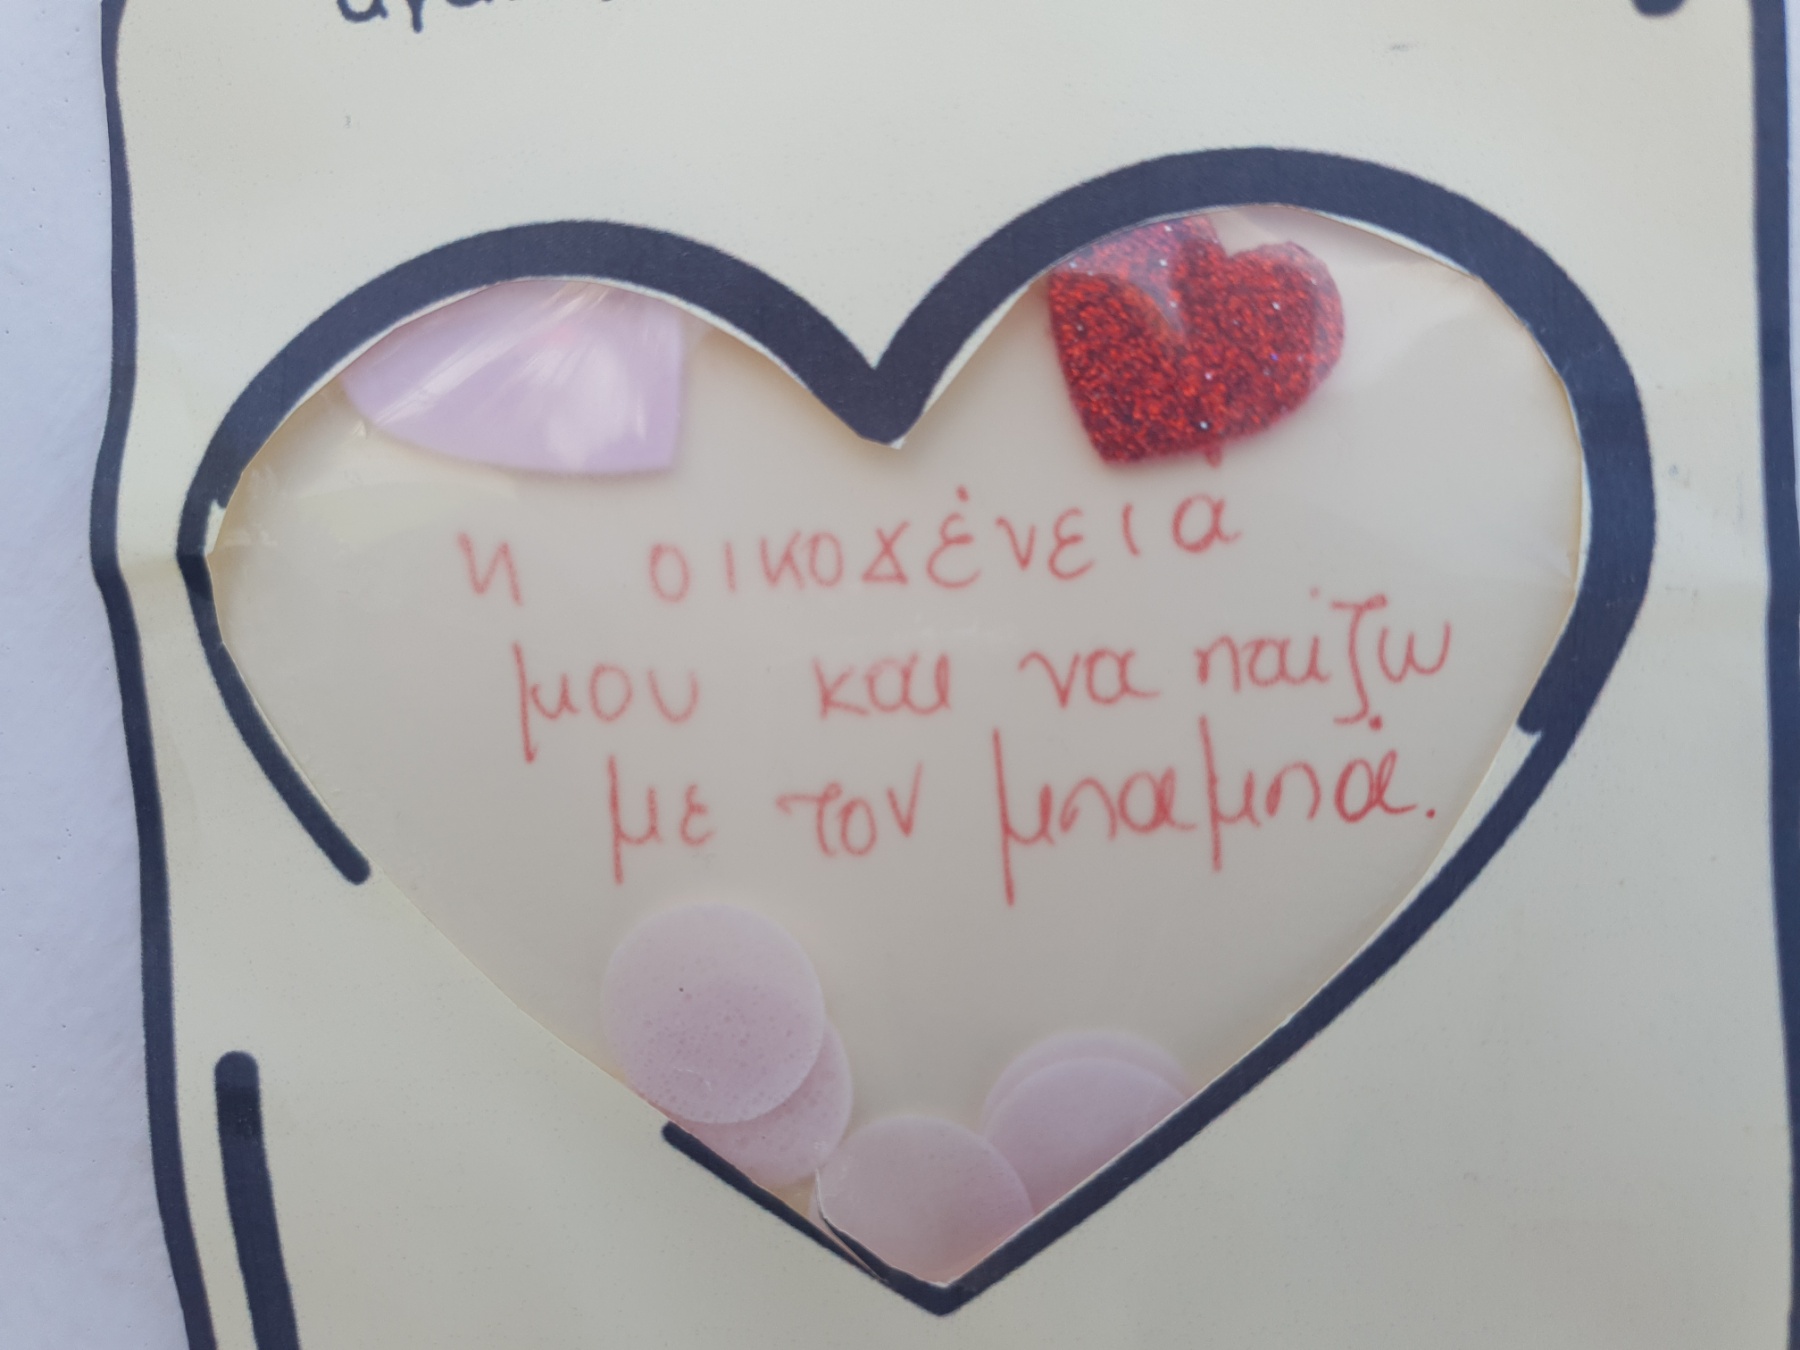 η οικογένειά
μου και να παίζω
με τον μπαμπά.